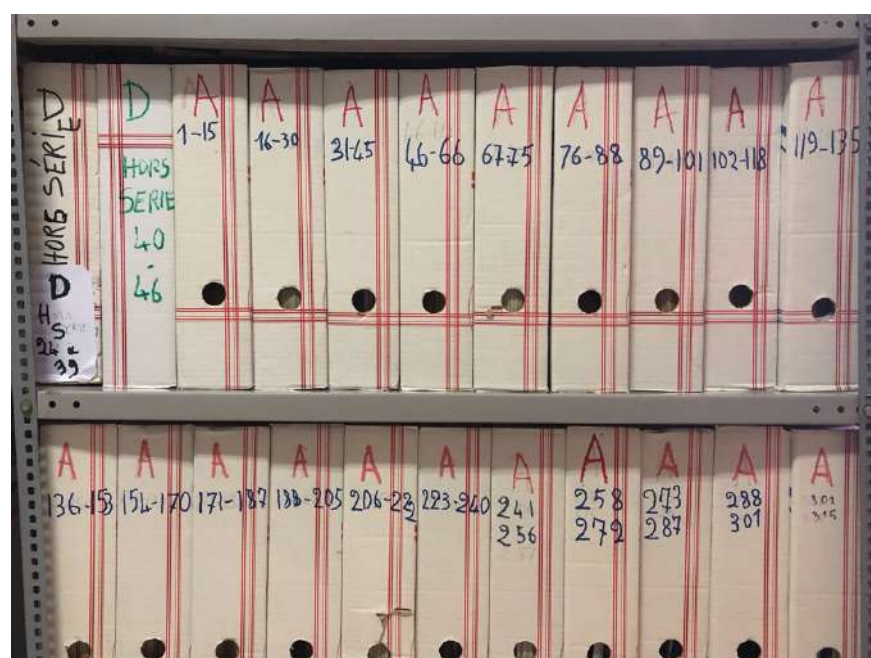 D
HORS SÉRIE
D
H
S
24 a
39
D
HORS
SERIE
40
-
46
A
1-15
A
16-30
A
31-45
A
46-66
A
67-75
A
76-88
A
89-101
A
102-118
A
119-135
A
136-153
A
154-170
A
171-187
A
188-205
A
206-222
A
223-240
A
241
256
A
258
272
A
273
287
A
288
301
A
301
315